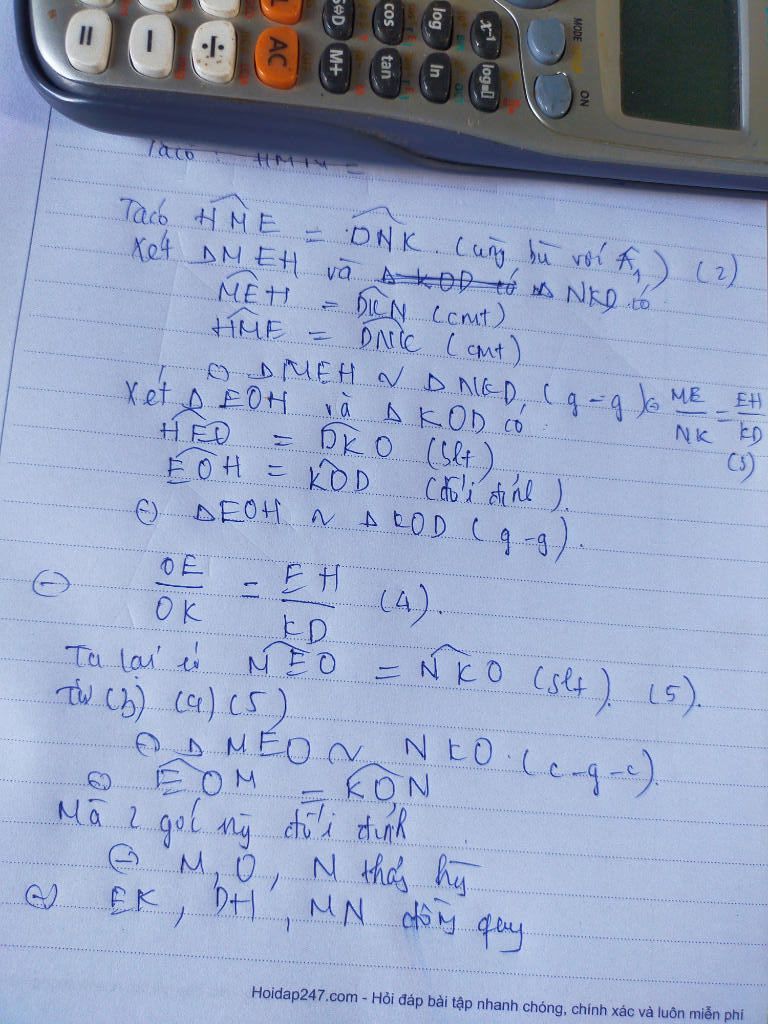 = - ÷ AC
S⇔D cos log x⁻¹ MODE
M+ tan ln log ON
Ta có : HM
Ta có HME = DNK (cùng bù với A₁) (2)
Xét ΔMEH và Δ KOD có Δ NKD có
MEH = DKN (cmt)
HME = DNK (cmt)
⇒ ΔMEH ~ ΔNKD (g-g) ⇒ ME/NK = EH/KD (3)
Xét ΔEOH và ΔKOD có
HEO = DKO (slt)
EOH = KOD (đối đỉnh).
⇒ ΔEOH ~ ΔKOD (g-g).
⇒ OE/OK = EH/KD (4).
Ta lại có MEO = NKO (slt). (5).
Từ (3) (4) (5)
⇒ Δ MEO ~ NKO. (c-g-c).
⇒ EOM = KON
Mà 2 góc này đối đỉnh
⇒ M, O, N thẳng hàng
⇒ EK, DH, MN đồng quy
Hoidap247.com - Hỏi đáp bài tập nhanh chóng, chính xác và luôn miễn phí